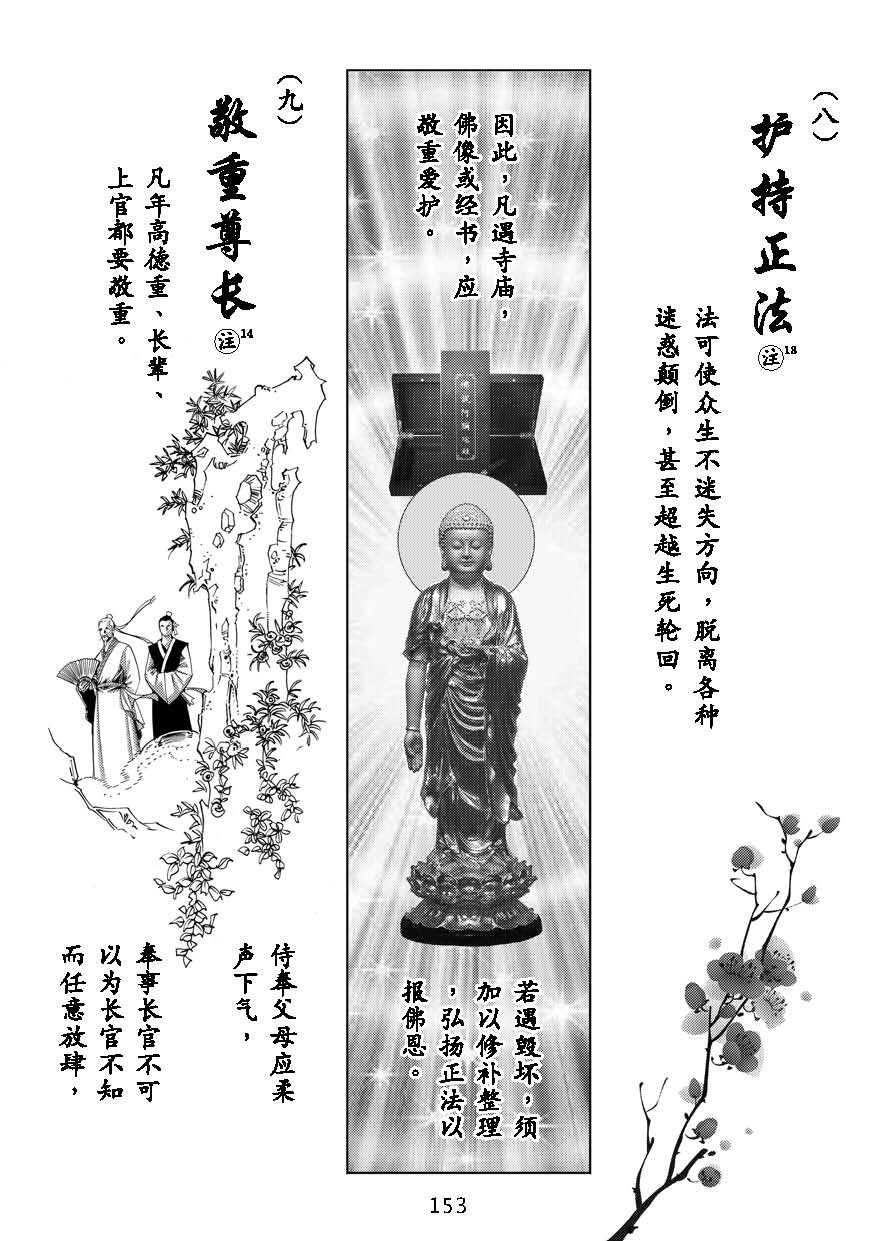 （八）
护持正法
注18
法可使众生不迷失方向，脱离各种
迷惑颠倒，甚至超越生死轮回。
因此，凡遇寺庙，
佛像或经书，应
敬重爱护。
佛说阿弥陀经
若遇毁坏，须
加以修补整理
，弘扬正法以
报佛恩。
（九）
敬重尊长
注14
凡年高德重、长辈、
上官都要敬重。
侍奉父母应柔
声下气，
奉事长官不可
以为长官不知
而任意放肆，
153